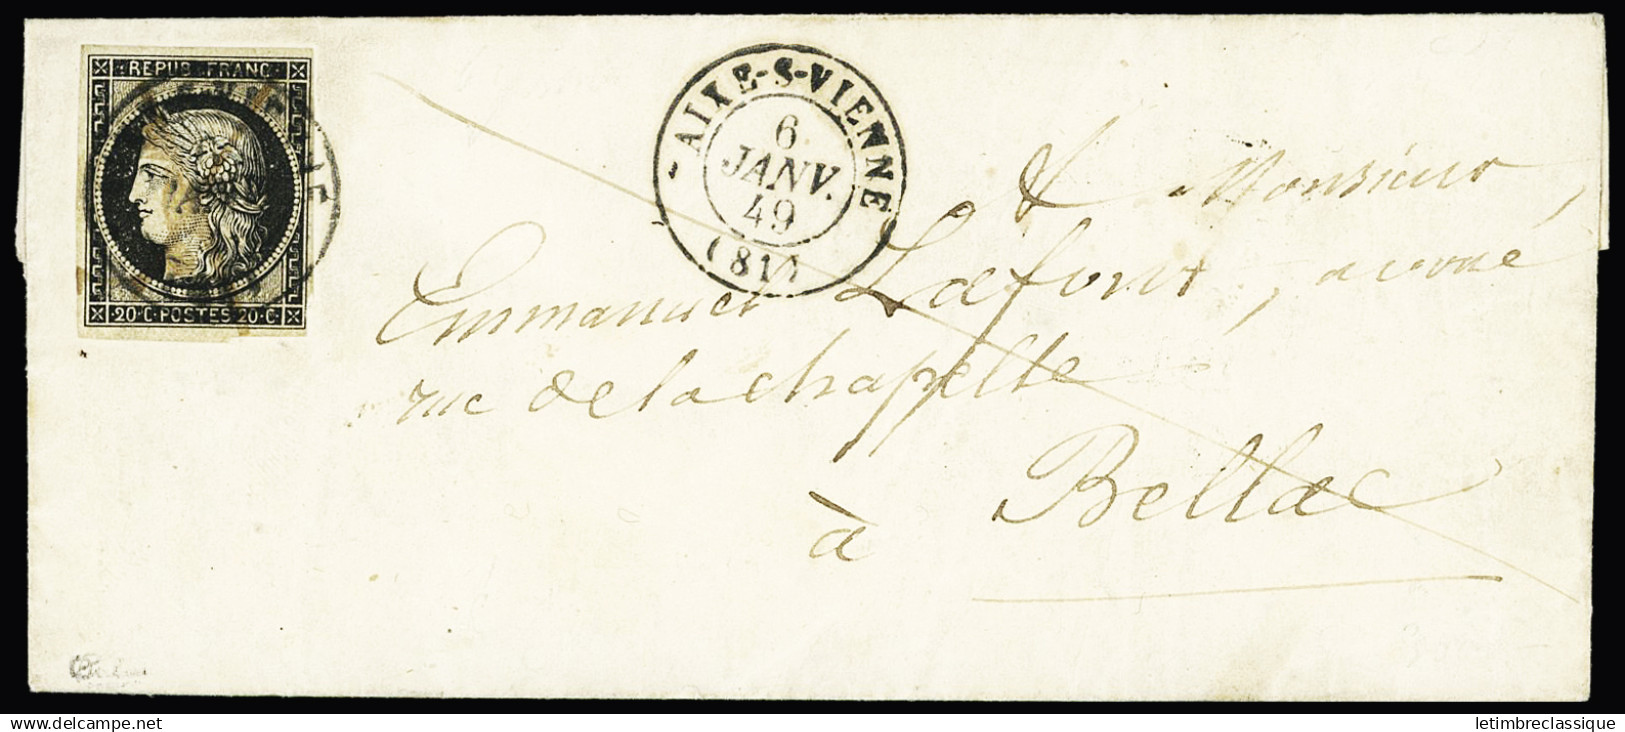 REPUB·FRANC·
20·C·POSTES·20·C
AIXE-S-VIENNE
6
JANV.
49
(81)
à Monsieur
Emmanuel Lafont, avoué
rue de la chapelle
à Bellac
www.delcampe.net
letimbreclassique